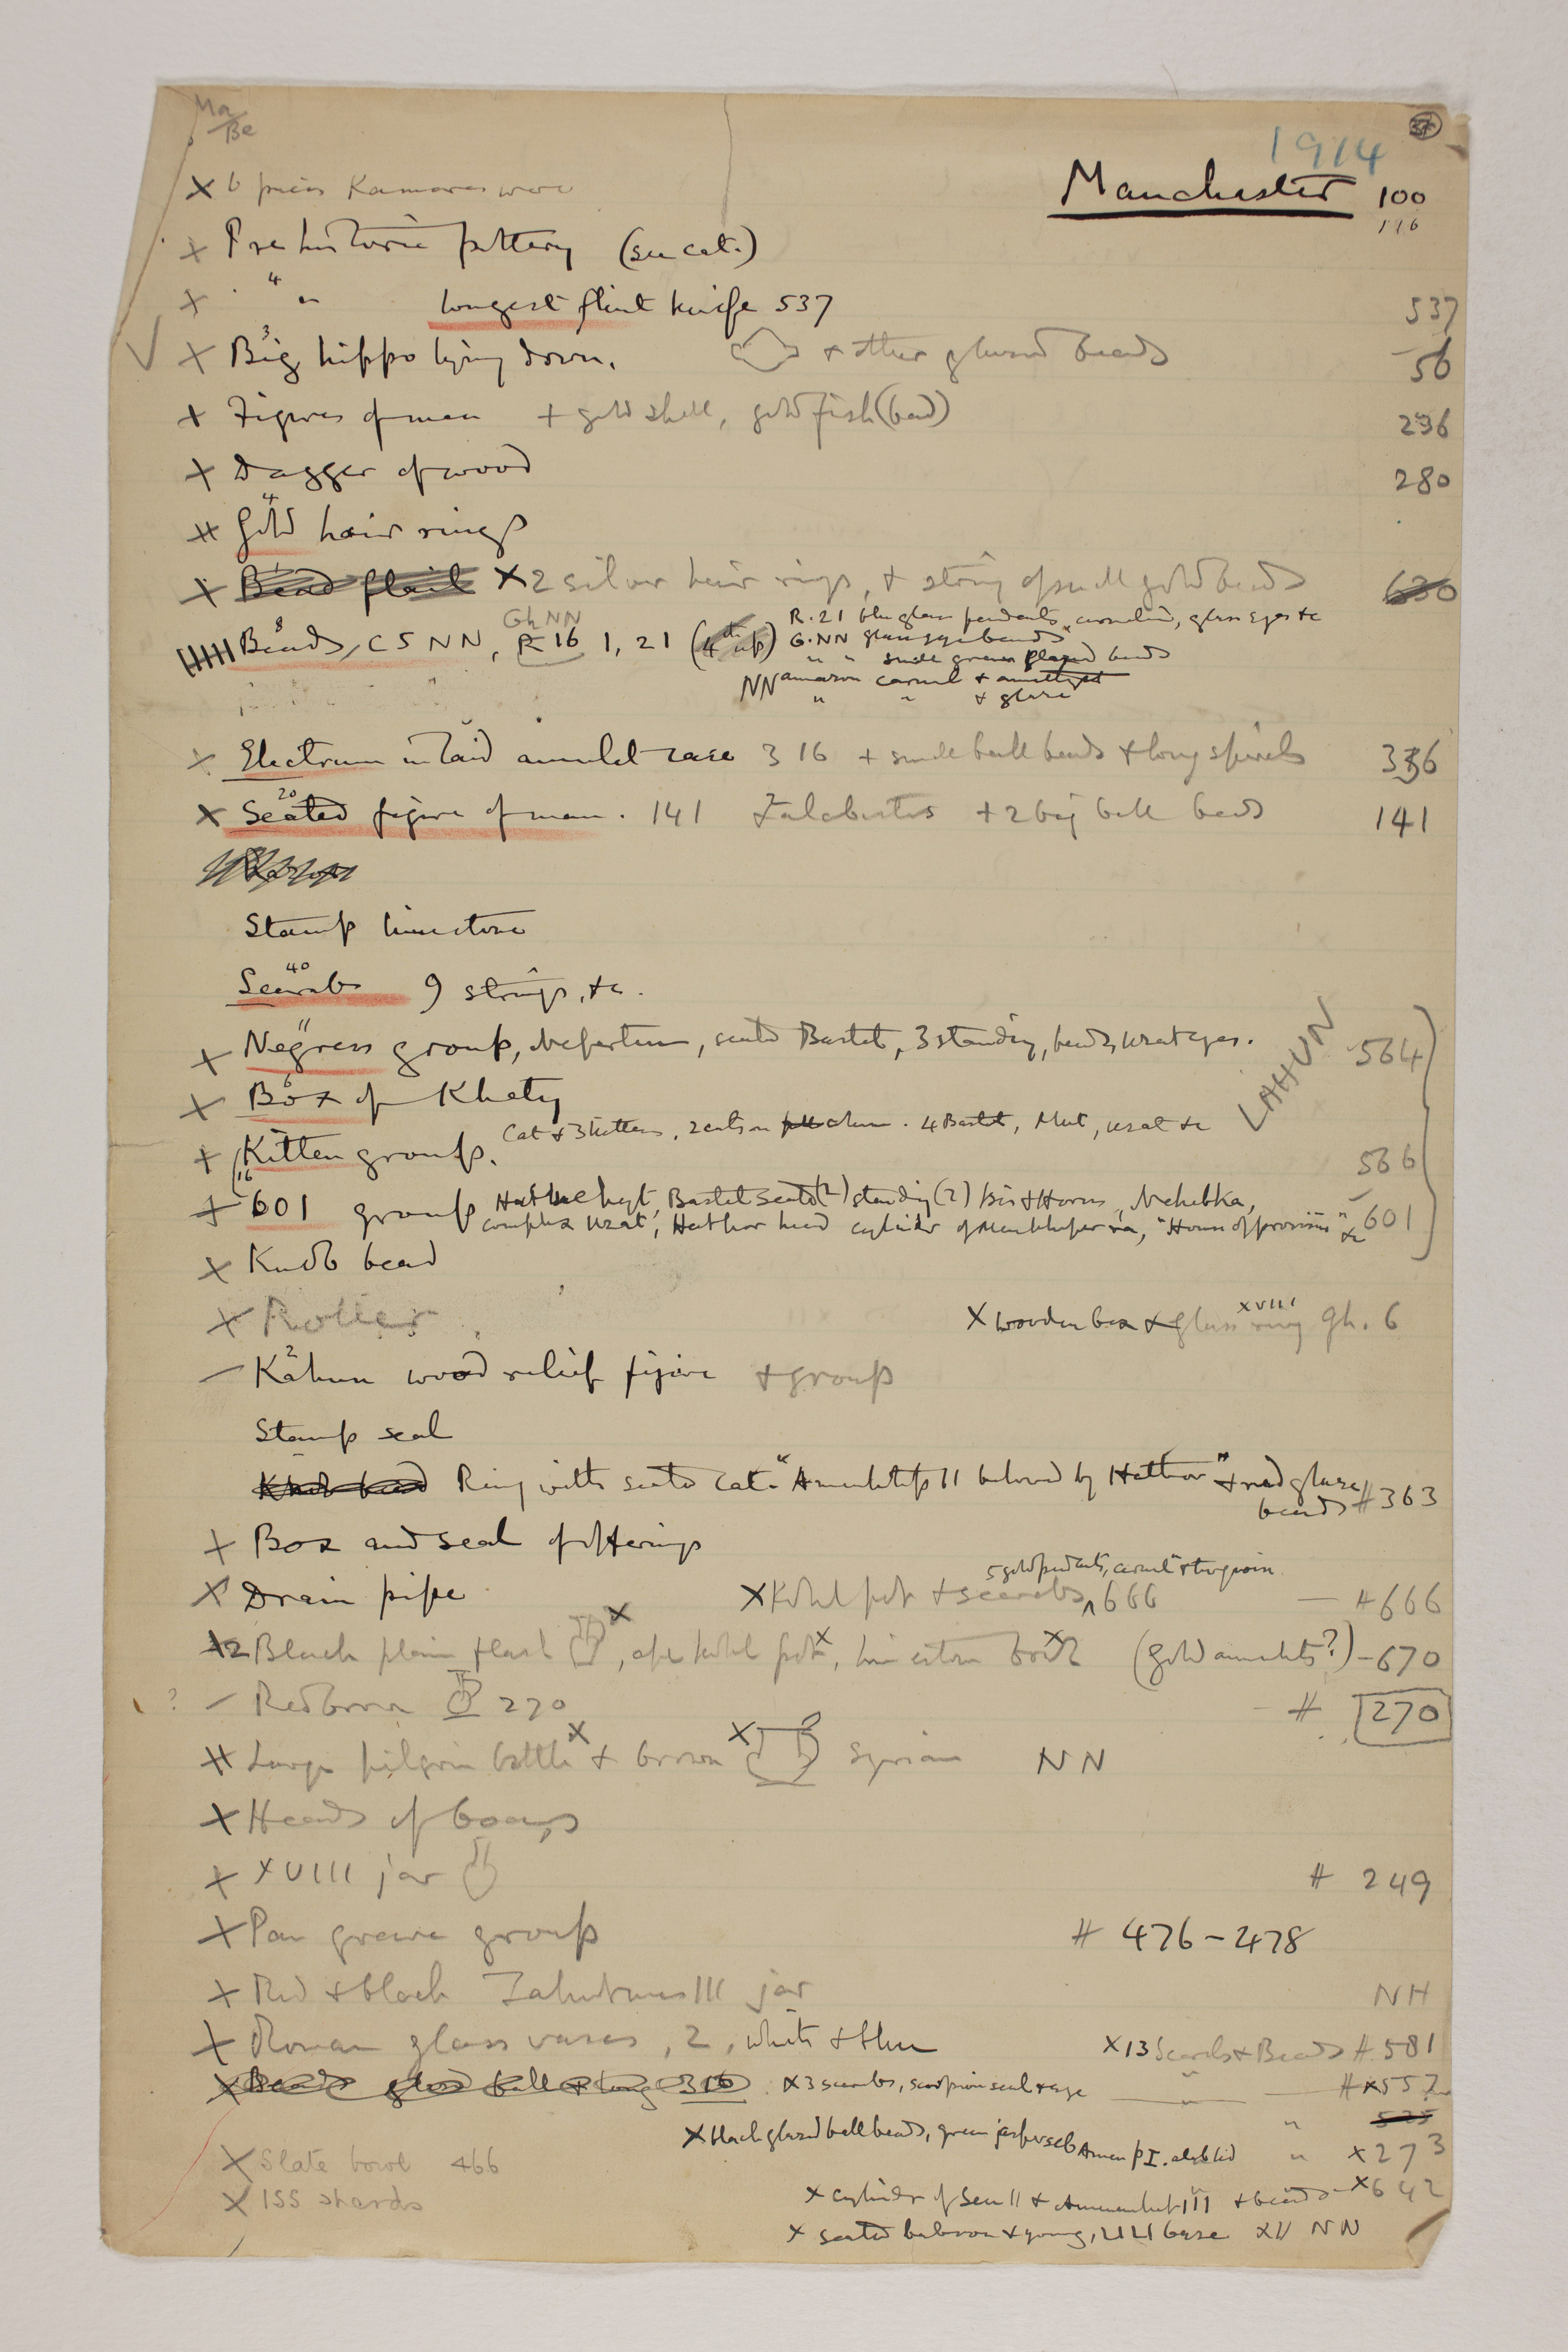 Ma
Be
37
1914
Manchester 100
116
X 6 pieces Kamares ware
X Prehistoric pottery (see cat.)
X " 4 " longest flint knife 537 537
✓ X Big 3 hippo lying down. + other glazed beads 56
X Figures of man + gold shell, gold fish (bad) 296
X Dagger of wood 280
X Gold 4 hair rings
X Bead flail X 2 silver hair rings, + string of small gold beads 630
Beads 8, CS NN, R 16 1, 21 (4th up) R.21 blue glass pendants, carnelian, glass eyes &c
Gh NN
G.NN glass eye beads
" " small green glazed beads
NN amazon carnel + amethyst
" " + glaze
X Electrum inlaid amulet case 316 + small ball beads + long spirals 336
X Seated 20 figure of man. 141 2 alabasters + 2 big ball beads 141
Stamp limestone
Scarabs 40 9 strings, &c.
X Negress 11 group, Nefertum, seated Bastet, 3 standing, beads, uzat eyes. 564
LAHUN
X Box 6 of Khety
X Kitten group. Cat + 3 kittens, 2 cats on column. 4 Bastet, Mut, uzat &c 566
X 16 601 group Hatmehyt, Bastet seated (2) standing (2) Isis + Horus, Nehebka,
complex uzat, Hathor head cylinder of Menkheperra, "House of provisions" &c 601
X Knob bead
X Roller X wooden box + glass XVIII ring Gh. 6
— Kahun 2 wood relief figure + group
Stamp seal
Knob bead Ring with seated cat "Amenhotep II beloved by Hathor" + red glaze
beads # 363
X Box and seal of offerings
5 gold pendants, carnel + turquoise
X Drain pipe X Kohl pot + scarabs, 666 — # 666
X 2 Black plain flask X, ape kohl pot X, limestone box X (gold amulets?) — 670
? — Red brown 270 — # 270
X Large pilgrim bottle X + brown X Syrian NN
X Heads of boars
X XVIII jar # 249
X Pan grave group # 476-478
X Red + black Tahutmes III jar NH
X Roman glass vases, 2, white + blue X 13 Scarabs + Beads # 581
X Beads glazed ball + long 316 X 3 scarabs, scorpion seal + eye " # X 557
" 525
X black glazed ball beads, green jasper scarab Amen p I. alab lid " X 273
X Slate bowl 466
X ISS sherds X cylinder of Sen II + Amenemhat III + beads " X 642
X seated baboon + young, base XII NN